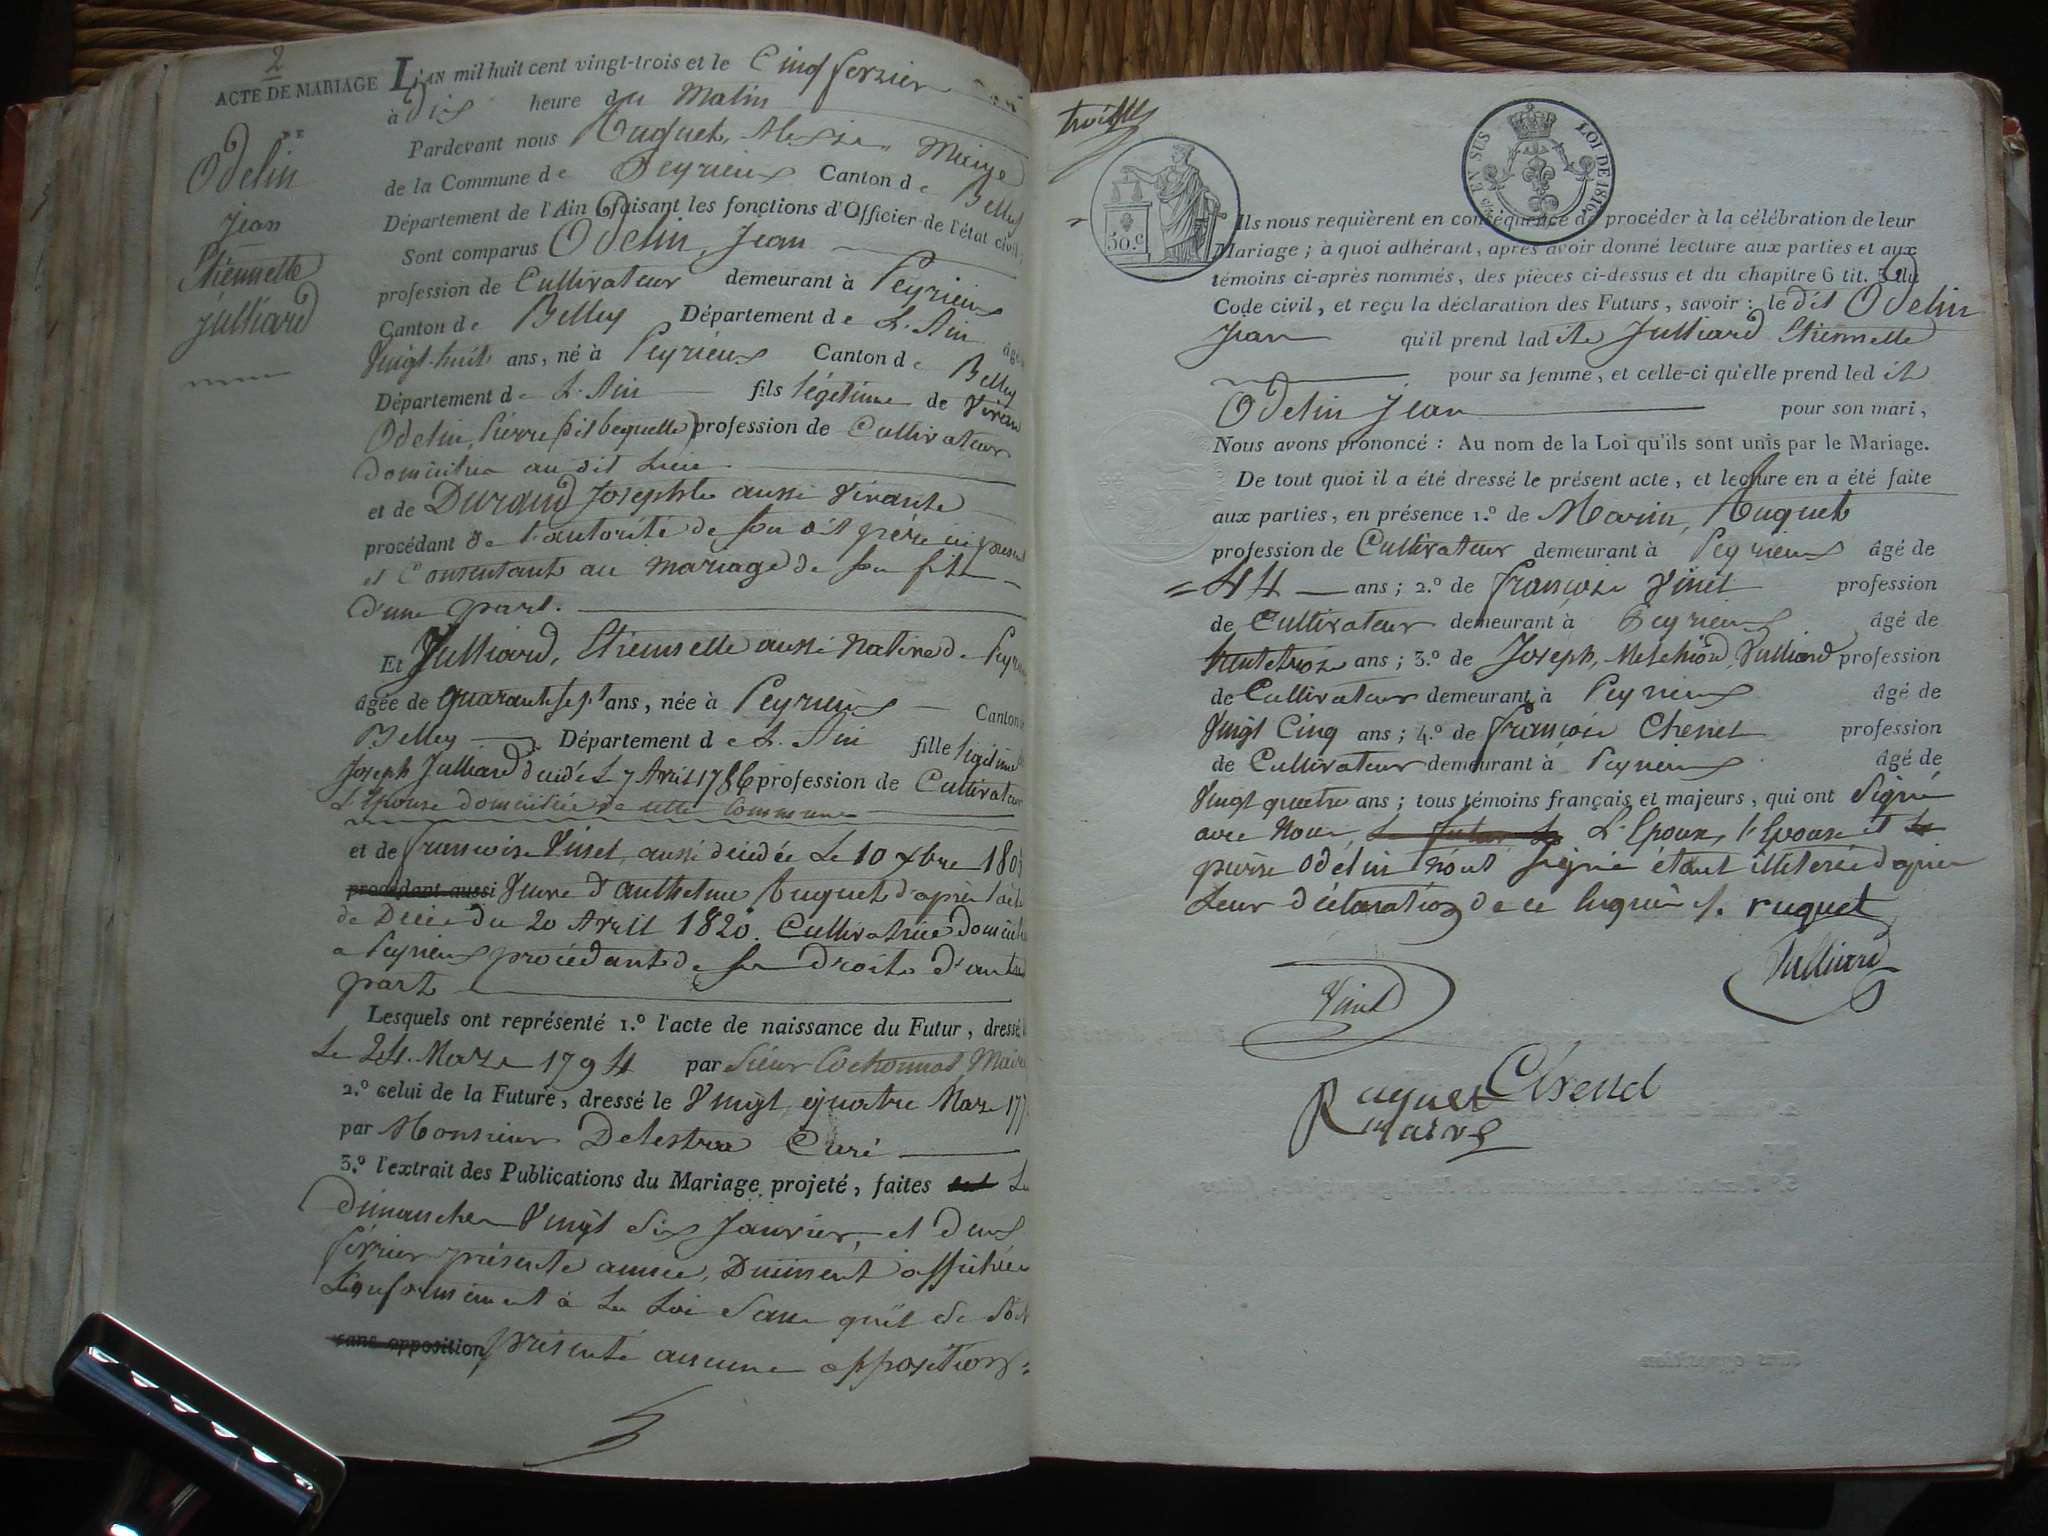 2
ACTE DE MARIAGE
DE
Odelin
Jean
Etiennette
Julliard
L'AN mil huit cent vingt-trois et le Cinq fevrier
à dix heure du Matin
Pardevant nous Ruguet, Maire
de la Commune de Peyrieux Canton de Belley
Département de l'Ain faisant les fonctions d'Officier de l'état civil
Sont comparus Odelin, Jean
profession de Cultivateur demeurant à Peyrieux
Canton de Belley Département de L'Ain âgé
Vingt-huit ans, né à Peyrieux Canton de Belley
Département de L'Ain fils légitime de vivan
Odelin, Pierre (dit bequelle) profession de Cultivateur
domicilié au dit Lieu
et de Durand Josephte aussi vivante
procédant de l'autorité de son dit père ici present
et Consentant au mariage de son fils
d'une part.
Et Julliard, Etiennette aussi Native de Peyrieux
âgée de quarante sept ans, née à Peyrieux Canton
Belley Département de L'Ain fille légitime
Joseph Julliard décédé Le 7 Avril 1786 profession de Cultivateur
L'Epouse domiciliée de cette Commune
et de francoise Vinet, aussi décédée Le 10 xbre 180
procédant aussi Veuve d'anthelme Ruguet d'après l'acte
de Décès du 20 Avril 1820. Cultivatrice domiciliée
a Peyrieux procédant de ses droits d'autre
part
Lesquels ont représenté 1.º l'acte de naissance du Futur, dressé
Le 24. Mars 1794 par Sieur Cochonnat Maire
2.º celui de la Future, dressé le Vingt quatre Mars 177
par Monsieur Delestra Curé
3.º l'extrait des Publications du Mariage projeté, faites Les
dimanches Vingt Six Janvier, et deux
fevrier présente année, Duement affichées
Conformement à La Loi Sans qu'il se soit
sans opposition présenté aucune opposition
50.C
LOI DE 1816
Ils nous requièrent en conséquence de procéder à la célébration de leur
Mariage; à quoi adhérant, après avoir donné lecture aux parties et aux
témoins ci-après nommés, des pièces ci-dessus et du chapitre 6 tit. 5 du
Code civil, et reçu la déclaration des Futurs, savoir: le dit Odelin
Jean qu'il prend ladite Julliard Etiennette
pour sa femme, et celle-ci qu'elle prend ledit
Odelin Jean pour son mari,
Nous avons prononcé: Au nom de la Loi qu'ils sont unis par le Mariage.
De tout quoi il a été dressé le présent acte, et lecture en a été faite
aux parties, en présence 1.º de Marin, Ruguet
profession de Cultivateur demeurant à Peyrieux âgé de
44 ans; 2.º de françois Vinet profession
de Cultivateur demeurant à Peyrieux âgé de
trente trois ans; 3.º de Joseph, Melchior Julliard profession
de Cultivateur demeurant à Peyrieux âgé de
Vingt Cinq ans; 4.º de françois Chenet profession
de Cultivateur demeurant à Peyrieux âgé de
Vingt quatre ans; tous témoins français et majeurs, qui ont Signé
avec Nous L'Epoux, l'Epouse et
pierre Odelin n'ont Signé étant illiterés d'après
Leur déclaration de ce requis ruguet
Julliard
Vinet
Ruguet Chenet
maire